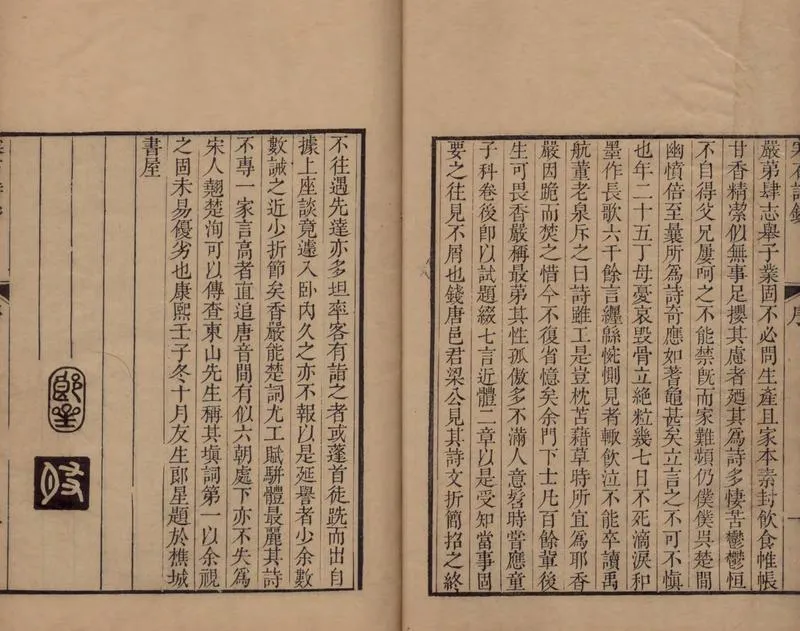 嚴第肆志舉子業固不必問生產且家本素封飲食帷帳
甘香精縈似無事足攖其慮者廼其為詩多悽苦鬱鬱恒
不自得父兄屢呵之不能禁旣而家難頻仍僕僕吳楚間
幽憤倍至曩所為詩奇應如蓍龜甚矣立言之不可不愼
也年二十五丁母憂哀毀骨立絶粒幾七日不死滴淚和
墨作長歌六千餘言纒緜悽惻見者輙飲泣不能卒讀禹
航董老泉斥之曰詩雖工是豈枕苫藉草時所宜為耶香
嚴因跪而焚之惜今不復省憶矣余門下士凡百餘輩後
生可畏香嚴稱最苐其性孤傲多不滿人意髫時嘗應童
子科卷後卽以試題綴七言近體二章以是受知當事固
要之往見不屑也錢唐邑君梁公見其詩文折簡招之終
序
不往遇先達亦多坦率客有詣之者或蓬首徒跣而出自
據上座談竟遽入卧内久之亦不報以是延譽者少余數
數誡之近少折節矣香嚴能楚詞尤工賦騈體最麗其詩
不專一家言高者直追唐音間有似六朝處下亦不失為
宋人翹楚洵可以傳查東山先生稱其塡詞第一以余視
之固未易優劣也康熙壬子冬十月友生郎星題於樵城
書屋
郎星